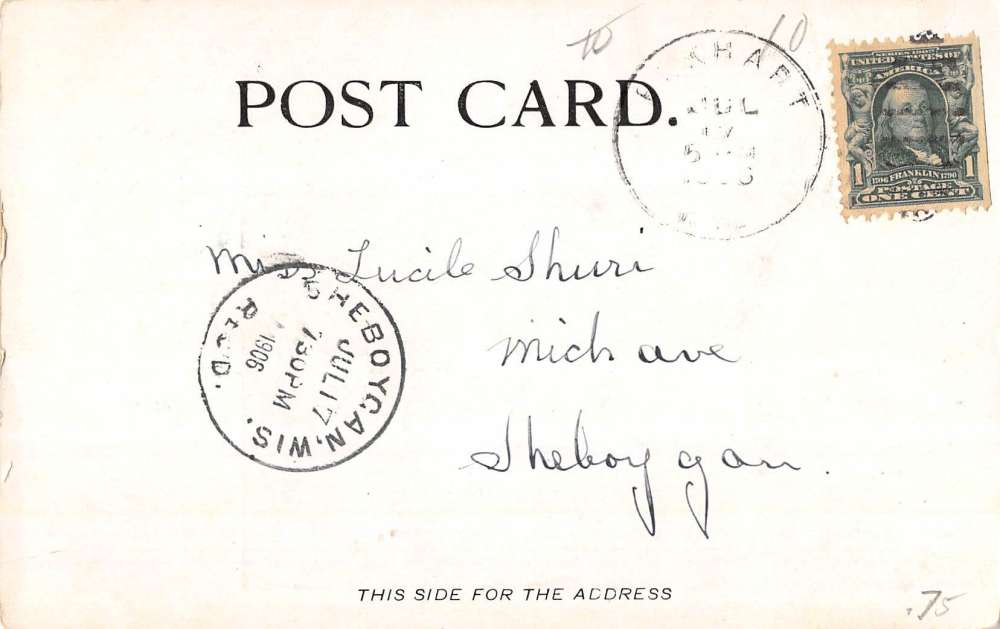 10
10
POST CARD.
ELKHART
JUL
17
5
1906
SERIES 1902
UNITED STATES OF
AMERICA
1 1
1706 FRANKLIN 1790
POSTAGE
ONE CENT
Miss Lucile Shuri
Mich ave
Sheboygan.
SHEBOYGAN, WIS.
JUL 17
730 PM
1906
REC'D.
THIS SIDE FOR THE ADDRESS
.75